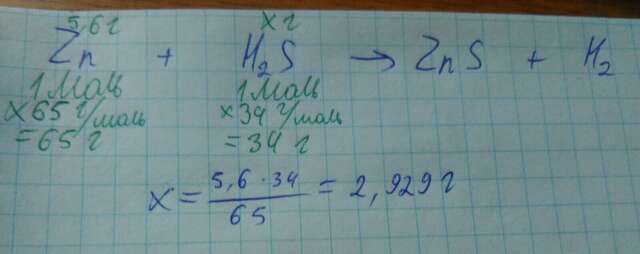 5,6 г x г
Zn + H₂S → ZnS + H₂
1 моль 1 моль
×65 г/моль ×34 г/моль
=65 г =34 г
x = 5,6 · 34 / 65 = 2,929 г